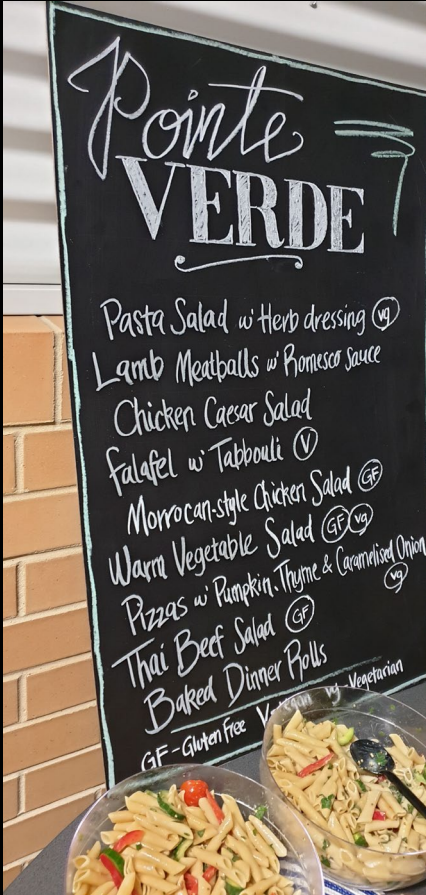 Pointe
VERDE
Pasta Salad w' Herb dressing vg
Lamb Meatballs w' Romesco sauce
Chicken Caesar Salad
Falafel w' Tabbouli V
Morrocan-style Chicken Salad GF
Warm Vegetable Salad GF vg
Pizzas w' Pumpkin, Thyme & Caramelised Onion
vg
Thai Beef Salad GF
Baked Dinner Rolls
GF - Gluten Free Vegetarian